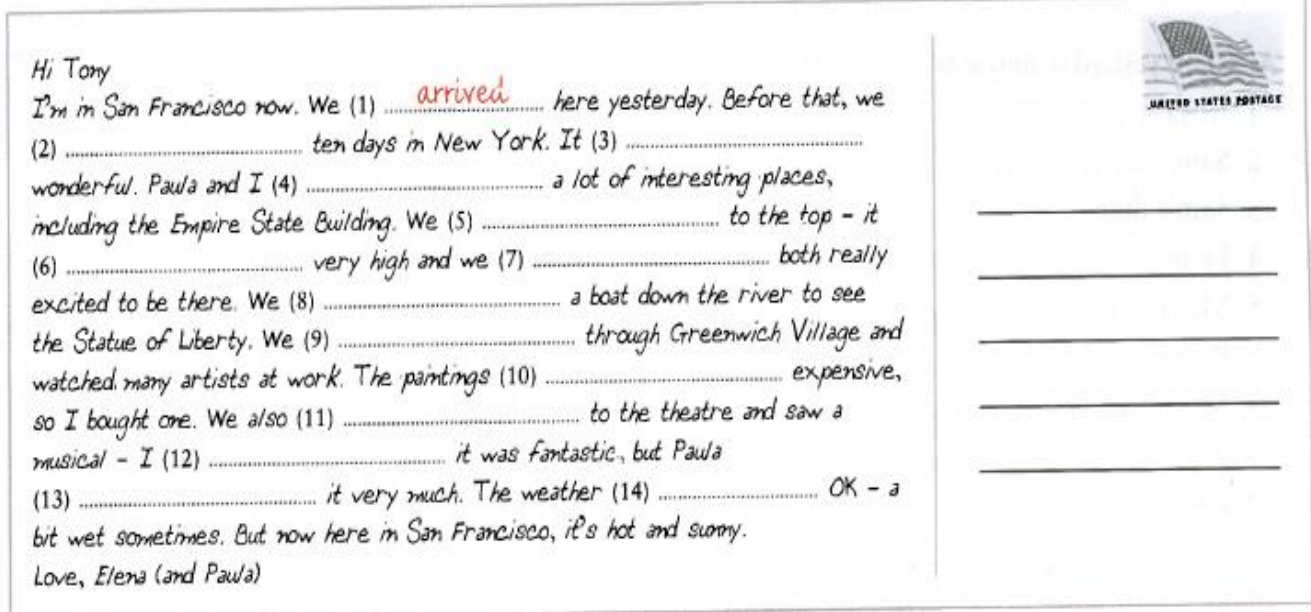 Hi Tony
I'm in San Francisco now. We (1) arrived here yesterday. Before that, we
(2) ........................ ten days in New York. It (3) ........................
wonderful. Paula and I (4) ........................ a lot of interesting places,
including the Empire State Building. We (5) ........................ to the top – it
(6) ........................ very high and we (7) ........................ both really
excited to be there. We (8) ........................ a boat down the river to see
the Statue of Liberty. We (9) ........................ through Greenwich Village and
watched many artists at work. The paintings (10) ........................ expensive,
so I bought one. We also (11) ........................ to the theatre and saw a
musical – I (12) ........................ it was fantastic, but Paula
(13) ........................ it very much. The weather (14) ................ OK – a
bit wet sometimes. But now here in San Francisco, it's hot and sunny.
Love, Elena (and Paula)
UNITED STATES POSTAGE